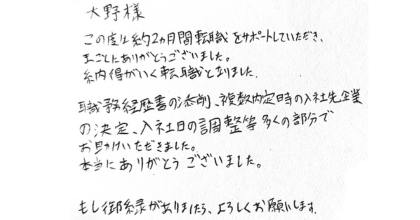 大野様
この度は約2ヵ月間転職をサポートしていただき、
まことにありがとうございました。
納得がいく転職となりました。
職務経歴書の添削、複数内定時の入社先企業
の決定、入社日の調整等多くの部分で
お助けいただきました。
本当にありがとうございました。
もし御縁がありましたら、よろしくお願いします。